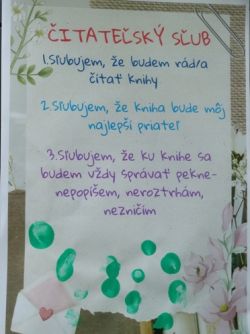 ČITATEĽSKÝ SĽUB
1.Sľubujem, že budem rád/a
čítať knihy
2.Sľubujem, že kniha bude môj
najlepší priateľ
3.Sľubujem, že ku knihe sa
budem vždy správať pekne-
nepopíšem, neroztrhám,
nezničím